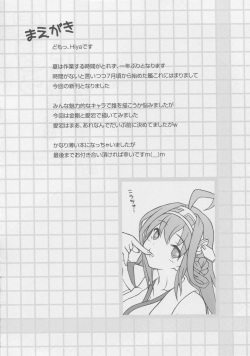 まえがき
どもっ、Hiyaです
夏は作業する時間がとれず、一年ぶりとなります
時間がないと言いつつ7月頃から始めた艦これにはまりまして
今回の新刊となりました
みんな魅力的なキャラで誰を描こうか悩みましたが
今回は金剛と愛宕で描いてみました
愛宕はまあ、あれなんでだいぶ前に決めてましたがw
かなり薄い本になっちゃいましたが
最後までお付き合い頂ければ幸いですm(__)m